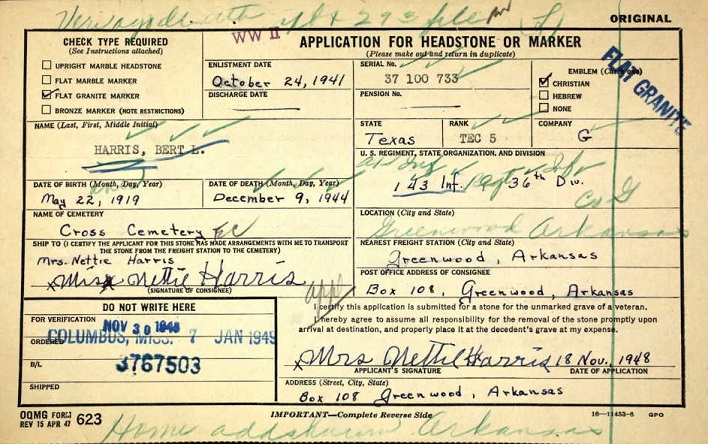 ORIGINAL
WW II
CHECK TYPE REQUIRED
(See Instructions attached)
UPRIGHT MARBLE HEADSTONE
FLAT MARBLE MARKER
FLAT GRANITE MARKER
BRONZE MARKER (NOTE RESTRICTIONS)
APPLICATION FOR HEADSTONE OR MARKER
(Please make out and return in duplicate)
ENLISTMENT DATE
October 24, 1941
DISCHARGE DATE
SERIAL No.
37 100 733
PENSION No.
EMBLEM (Check one)
CHRISTIAN
HEBREW
NONE
FLAT GRANITE
NAME (Last, First, Middle Initial)
HARRIS, BERT L.
STATE
Texas
RANK
TEC 5
COMPANY
G
U. S. REGIMENT, STATE ORGANIZATION, AND DIVISION
143 Inf. 36th Div.
Co G
DATE OF BIRTH (Month, Day, Year)
May 22, 1919
DATE OF DEATH (Month, Day, Year)
December 9, 1944
NAME OF CEMETERY
Cross Cemetery
LOCATION (City and State)
Greenwood Arkansas
SHIP TO (I CERTIFY THE APPLICANT FOR THIS STONE HAS MADE ARRANGEMENTS WITH ME TO TRANSPORT THE STONE FROM THE FREIGHT STATION TO THE CEMETERY)
Mrs. Nettie Harris
Miss Nettie Harris
(SIGNATURE OF CONSIGNEE)
NEAREST FREIGHT STATION (City and State)
Greenwood, Arkansas
POST OFFICE ADDRESS OF CONSIGNEE
Box 108, Greenwood, Arkansas
DO NOT WRITE HERE
FOR VERIFICATION
NOV 30 1948
ORDERED
COLUMBUS, MISS. 7 JAN 1949
B/L
3767503
SHIPPED
I certify this application is submitted for a stone for the unmarked grave of a veteran.
I hereby agree to assume all responsibility for the removal of the stone promptly upon
arrival at destination, and properly place it at the decedent's grave at my expense.
Mrs Nettie Harris 18 Nov., 1948
APPLICANT'S SIGNATURE DATE OF APPLICATION
ADDRESS (Street, City, State)
Box 108 Greenwood, Arkansas
OQMG FORM
REV 15 APR 47 623
IMPORTANT—Complete Reverse Side
16—11453-6 GPO
Home Arkansas